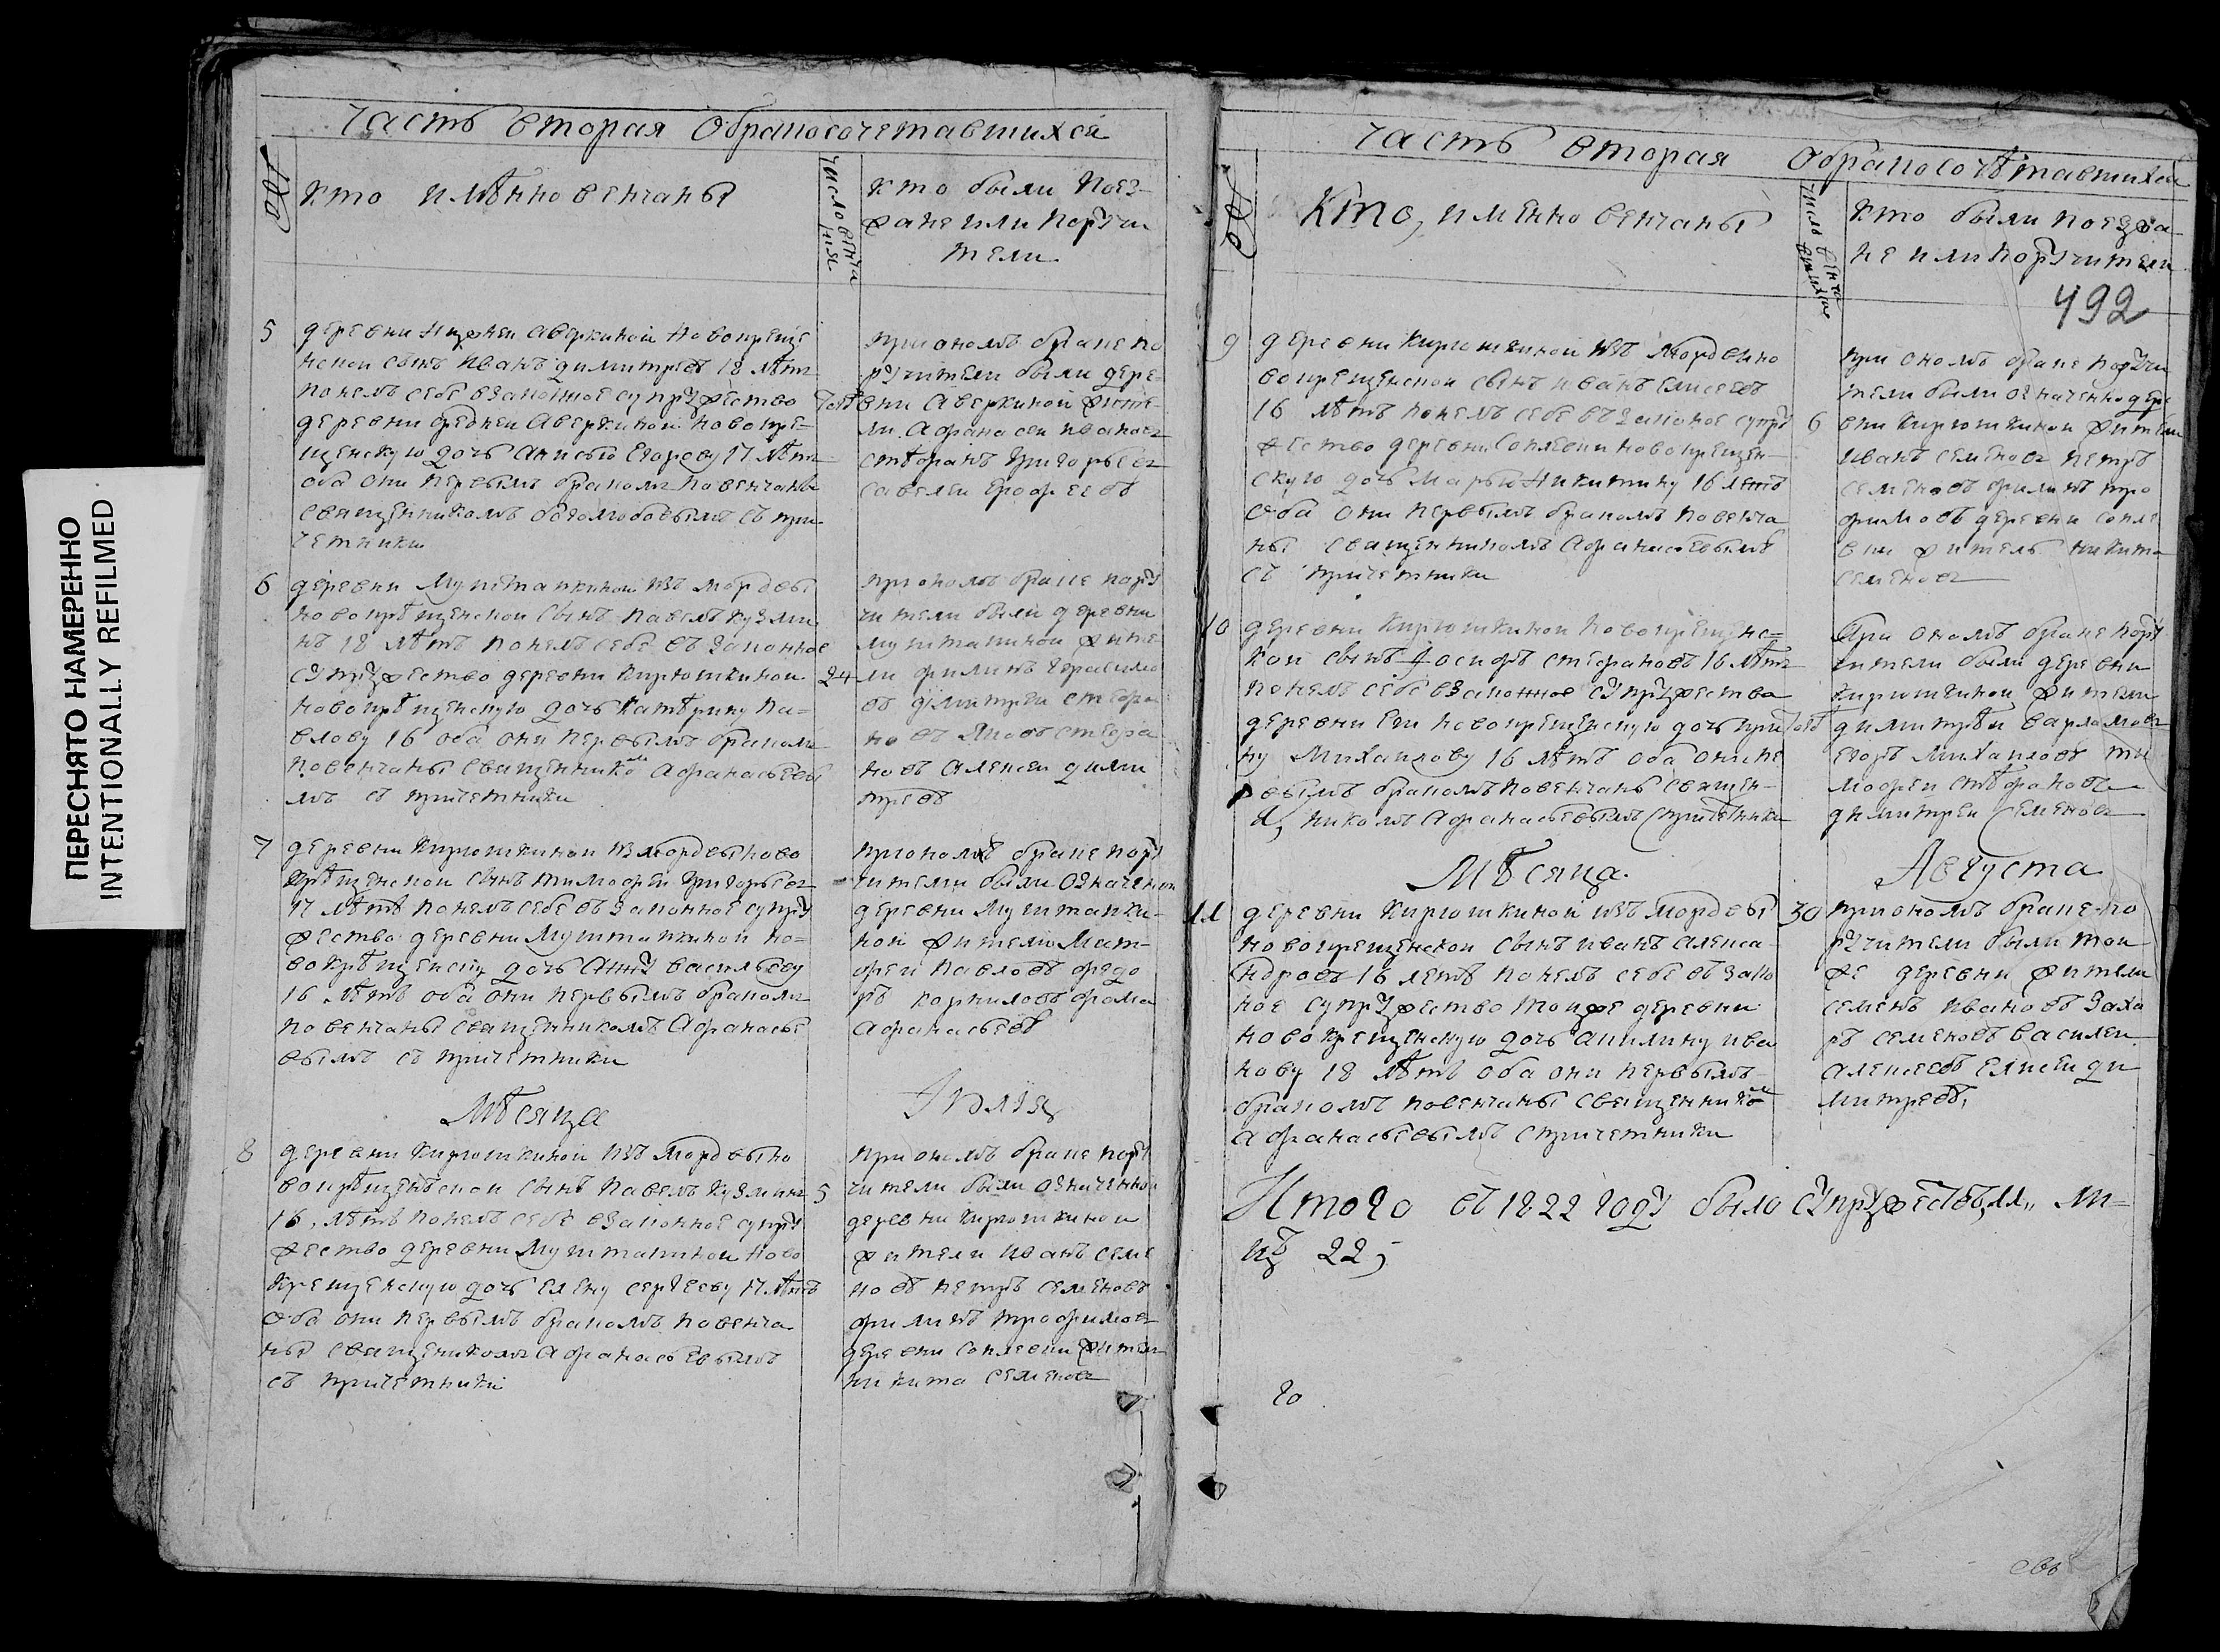 ПЕРЕСНЯТО НАМЕРЕННО
INTENTIONALLY REFILMED
Часть вторая Обракосочетавшихся
№
Кто имѣнно венчаны
число венча
ния
Кто были поез-
жане или поручи
тели
5
деревни Нижней Аверкиной Новокреще
нскои сынъ Иванъ Димитреевъ 18 лѣтъ
понелъ себе взаконное супружество
тожъ
деревни Средней Аверкиной новокре-
щенскую дочь Анисью Егорову 17 лѣтъ
оба они первымъ бракомъ повенчаны
священникомъ Боголюбовымъ съ при
четники
при ономъ браке по
ручители были дере-
вни Аверкиной жите-
ли Афанасеи Ивановъ
Стефанъ Григорьевъ
Савелеи Ерофеевъ
6
деревни Мушtaпкиной изъ мордвы
новокрѣщенскои сынъ Павелъ Кузми
нъ 18 лѣтъ понелъ себе въ законное
супружество деревни Кирюшкиной
24
новокрѣщенскую дочь Катѣрину Па-
влову 16 оба они первымъ бракомъ
повенчаны священникомъ Афанасьевы
мъ съ причетники
при ономъ браке пору
чители были деревни
жите-
ли Филипъ Герасимо
въ Димитреи Стефа
новъ Яковъ Стефа
новъ Алексеи Дими
треевъ
7
деревни Кирюшкиной из мордвы ново
крѣщенскои сынъ Тимофеи Григорьевъ
17 лѣтъ понелъ себе въ законное супру
жество деревни но-
вокрѣщенскую дочь Анну Васильеву
16 лѣтъ оба они первымъ бракомъ
повенчаны священникомъ Афанасье
вымъ съ причетники
при ономъ браке пору
чители были означенной
деревни
ной жители Мат-
феи Павловъ Федо
ръ Корниловъ Фома
Афанасьевъ
Мѣсяца
Iюлiя
8
деревни Кирюшкиной изъ мордвы но
вокрѣщенскои сынъ Павелъ Кузминъ
5
16 лѣтъ понелъ себе взаконное супру
жество деревни ново
крещенскую дочь Елену Сергееву 17 лѣтъ
оба они первымъ бракомъ повенча
ны священикомъ Афанасьевымъ
съ причетники
при ономъ браке пору
чители были означенной
деревни Кирюшкиной
жители Иванъ Семе
новъ Петръ Семеновъ
Филипъ Трофимовъ
деревни житель
Никита Семеновъ
Часть вторая Обракосочѣтавшихся
№
Кто, именно венчаны
число венча
Кто были поезжа-
не или поручители
492
9
деревни Кирюшкиной изъ мордвы но
вокрещенскои сынъ Иванъ Елисеевъ
16 лѣтъ понелъ себе въ законое супру
6
жество деревни новокрещен-
скую дочь Марью Никитину 16 летъ
оба они первымъ бракомъ повенча
ны священникомъ Афанасьевымъ
съ причетники
при ономъ браке поручи
тели были означенно дере
вни Кирюшкиной жители
Иванъ Семеновъ Петръ
Семеновъ Филипъ Тро
фимовъ деревни
житель Никита
Семеновъ
10
деревни Кирюшкиной новокрещенс=
кои сынъ Iосифъ Стефановъ 16 лѣтъ
понелъ себе взаконное супружества
деревни еи новокрещенскую дочь Ири
тожъ
ну Михаилову 16 лѣтъ оба они пе
рвымъ бракомъ повенчаны священ-
никомъ Афанасьевымъ с причетники
При ономъ браке пору
чители были деревни
Кирюшкиной жители
Димитрѣи Варламовъ
Егоръ Михаиловъ Ти
мофеи Стѣфановъ
Димитреи Семеновъ
Мѣсяца
Августа
11
деревни Кирюшкиной изъ мордвы
30
новокрещенскои сынъ Иванъ Алекса
ндровъ 16 летъ понелъ себе въ зако
ное супружество тоиже деревни
новокрещенскую дочь Акилину Ива
нову 18 лѣтъ оба они первымъ
бракомъ повенчаны священникомъ
Афанасьевымъ с причетники
при ономъ браке по
ручители были тои
же деревни жители
Семенъ Ивановъ Заха
ръ Семеновъ Василеи
Алексеевъ Елисеи Ди
митреевъ,
Итого въ 1822 году было супружествъ, 11, ли-
цъ 22;
20